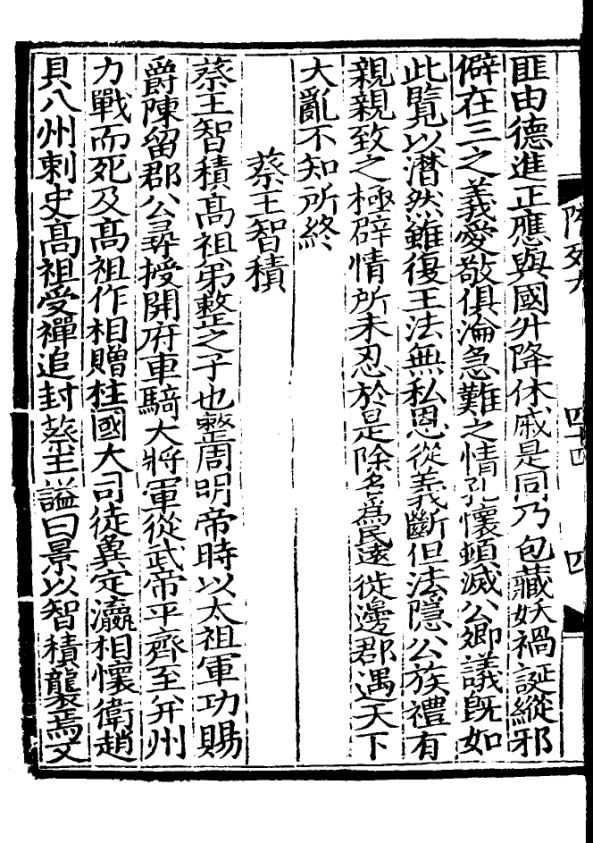 四十四
四
匪由德進正應與國升降休戚是同乃包藏妖禍誕縱邪
僻在三之義愛敬俱淪急難之情孔懷頓滅公卿議既如
此覽以潸然雖復王法無私恩從義斷但法隱公族禮有
親親致之極辟情所未忍於是除名爲民遠徙邊郡遇天下
大亂不知所終
蔡王智積
蔡王智積髙祖弟整之子也整周明帝時以太祖軍功賜
爵陳留郡公尋授開府車騎大將軍從武帝平齊至并州
力戰而死及髙祖作相贈柱國大司徒冀定瀛相懷衛趙
貝八州刺史髙祖受禪追封蔡王謚曰景以智積襲焉又